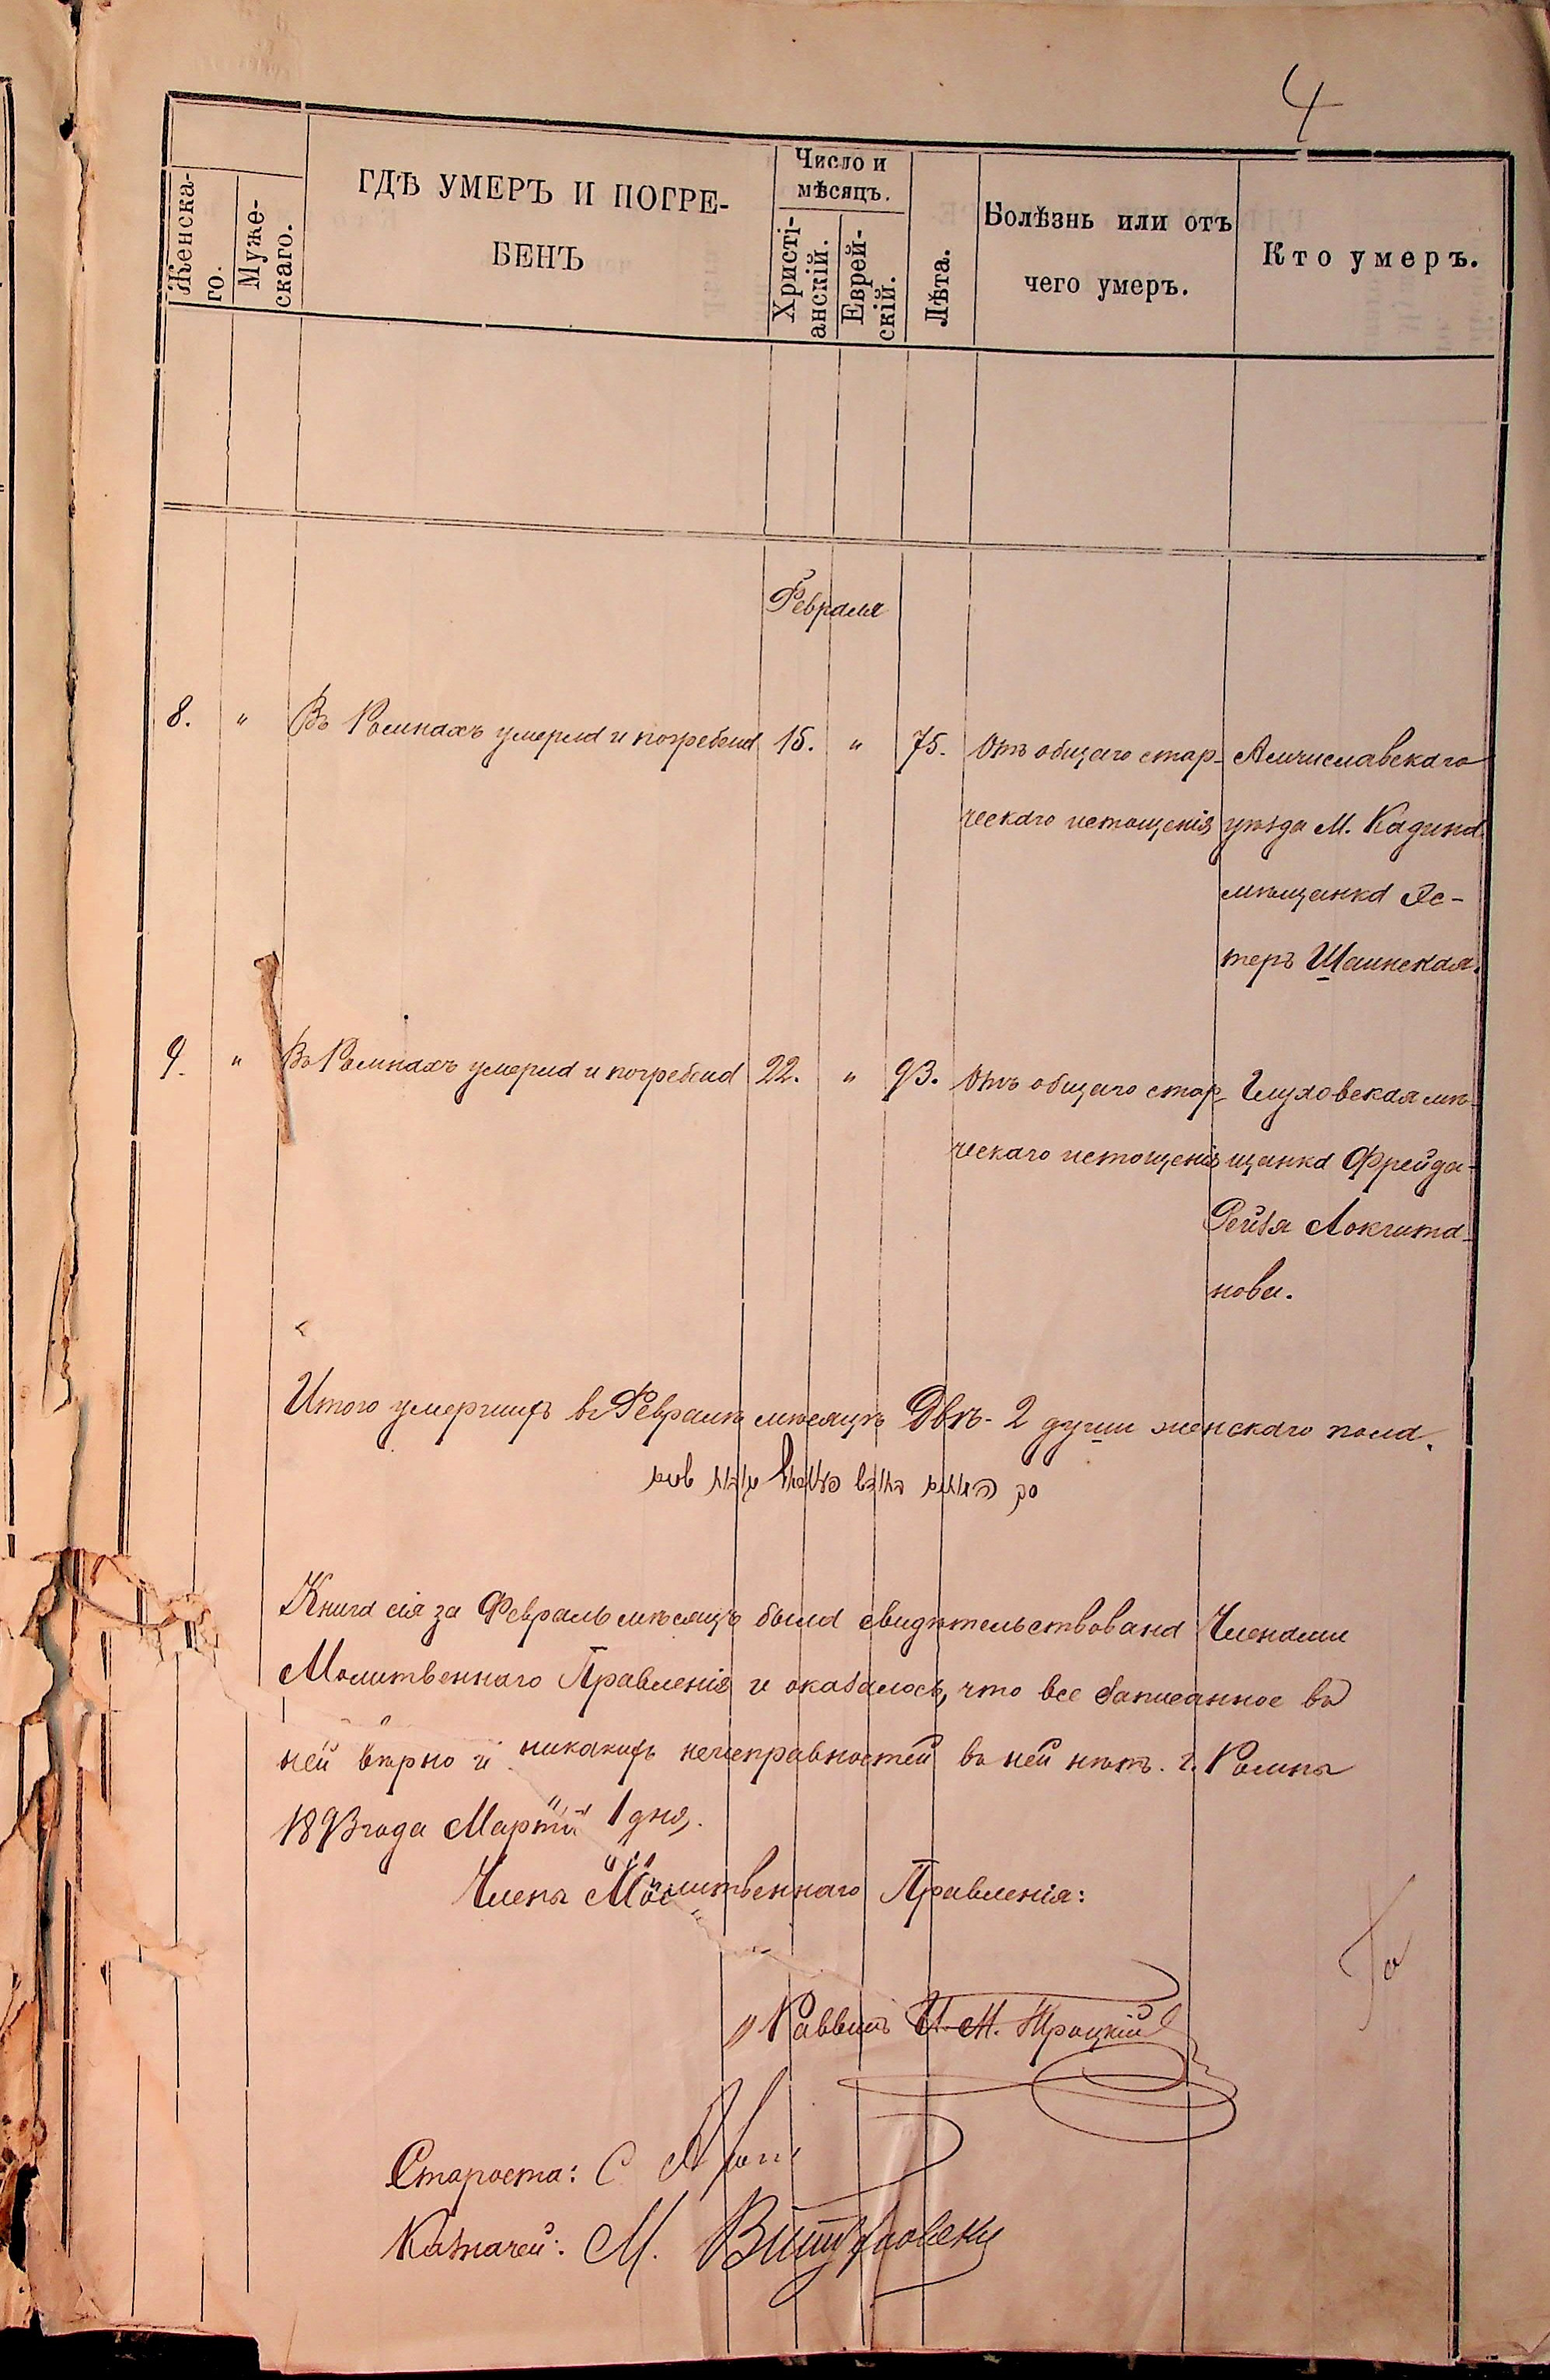 4
Женска-
го.
Муже-
скаго.
ГДѢ УМЕРЪ И ПОГРЕ-
БЕНЪ
Число и
мѣсяцъ.
Христі-
анскій.
Еврей-
скій.
Лѣта.
Болѣзнь или отъ
чего умеръ.
Кто умеръ.
Февраля
8. " Въ Ромнахъ умерла и погребена 15. " 75. Отъ общаго стар- Мстиславскаго
ческаго истощенія уѣзда М. Кадина
мѣщанка Эс-
теръ
9. " Въ Ромнахъ умерла и погребена 22. " 93. Отъ общаго стар- Глуховская мѣ-
ческаго истощенія щанка Фрейда-
Рейзя Локшта-
нова.
Итого умершихъ въ Февралѣ мѣсяцѣ Двѣ - 2 души женскаго пола.
Книга сія за Февраль мѣсяцъ была свидѣтельствована Членами
Молитвеннаго Правленія и оказалось, что все записанное въ
ней вѣрно и никакихъ неисправностей въ ней нѣтъ. г. Ромны
1893 года Марта 1 дня.
Члены Молитвеннаго Правленія:
Раввинъ И. М. Троцкій
Староста: С
Казначей: М.